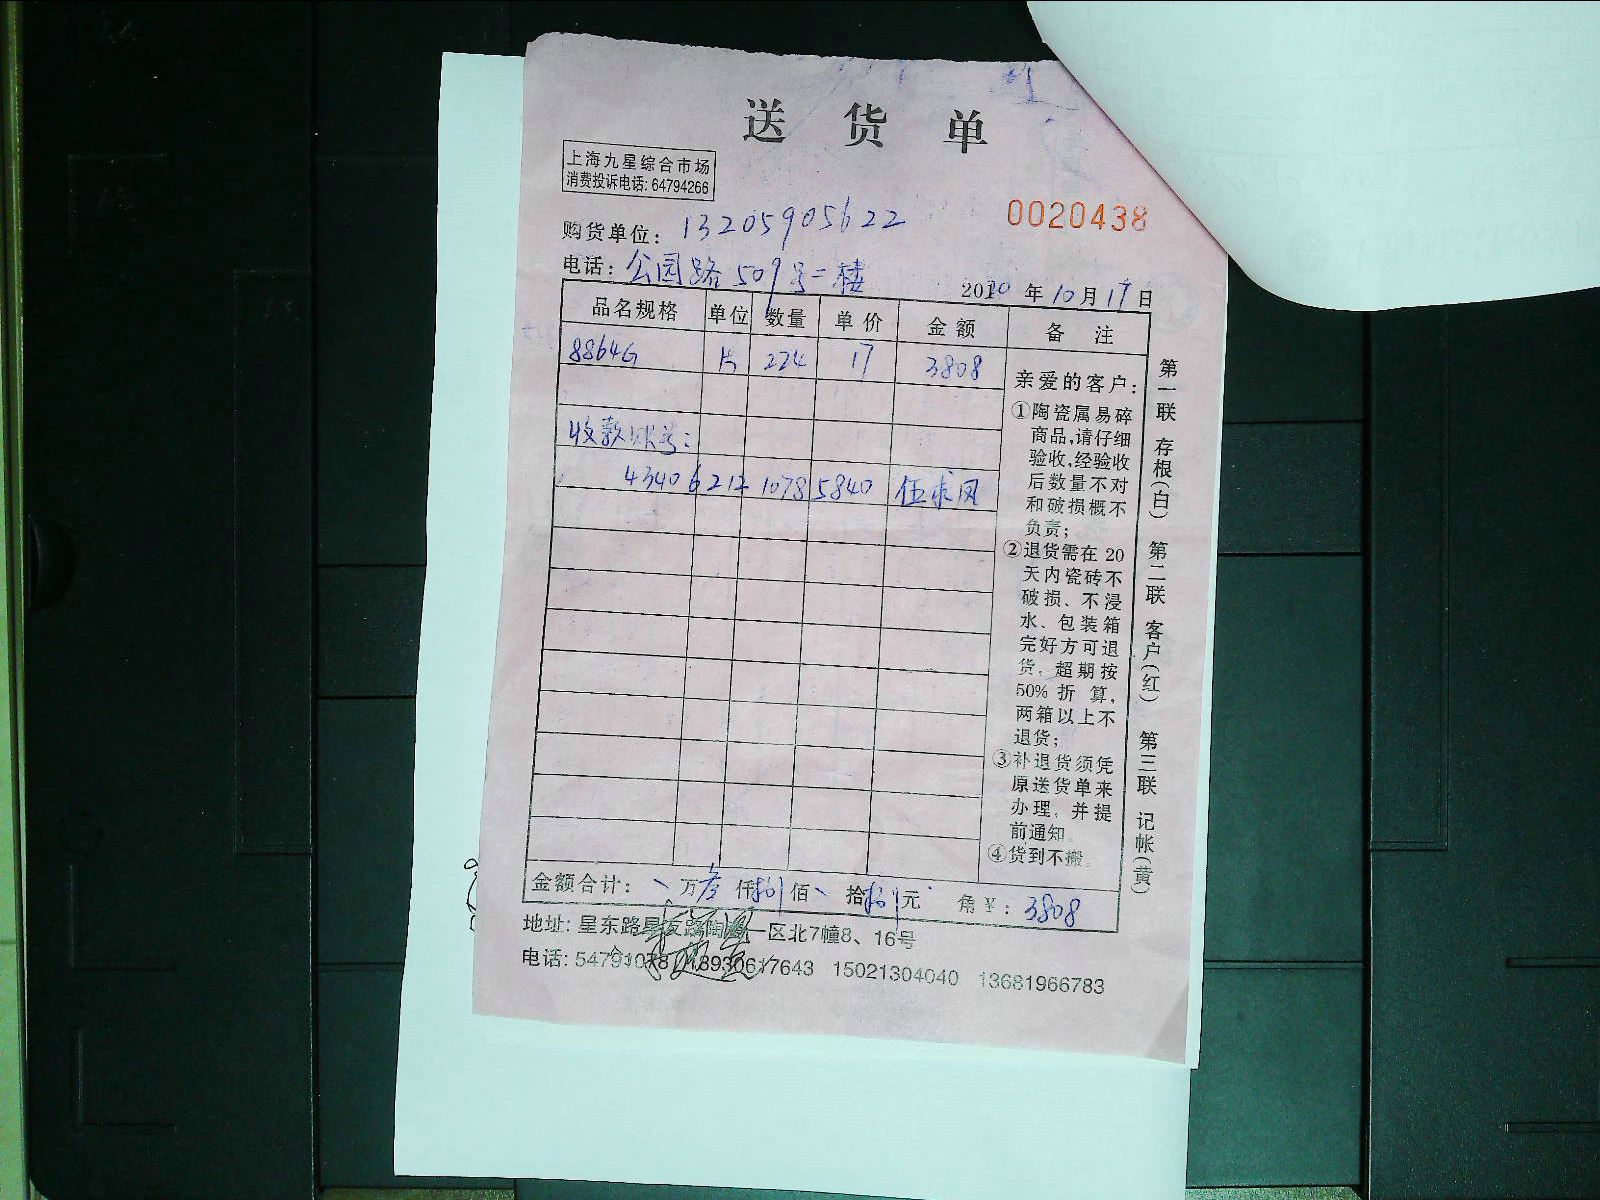 送货单
上海九星综合市场
消费投诉电话: 64794266
0020438
购货单位: 13205905622
电话: 公园路509号二楼
2010年10月17日
品名规格 单位 数量 单价 金额 备注
8864G 片 224 17 3808
收款账号:
4340 6212 1078 5840 伍求凤
亲爱的客户:
①陶瓷属易碎
商品,请仔细
验收,经验收
后数量不对
和破损概不
负责;
②退货需在20
天内瓷砖不
破损、不浸
水、包装箱
完好方可退
货,超期按
50%折算,
两箱以上不
退货;
③补退货须凭
原送货单来
办理,并提
前通知。
④货到不搬。
第一联 存根(白) 第二联 客户(红) 第三联 记帐(黄)
金额合计: 万叁仟捌佰 拾捌元 角¥: 3808
地址: 星东路星友路陶瓷一区北7幢8、16号
电话: 54791078 18930617643 15021304040 13681966783